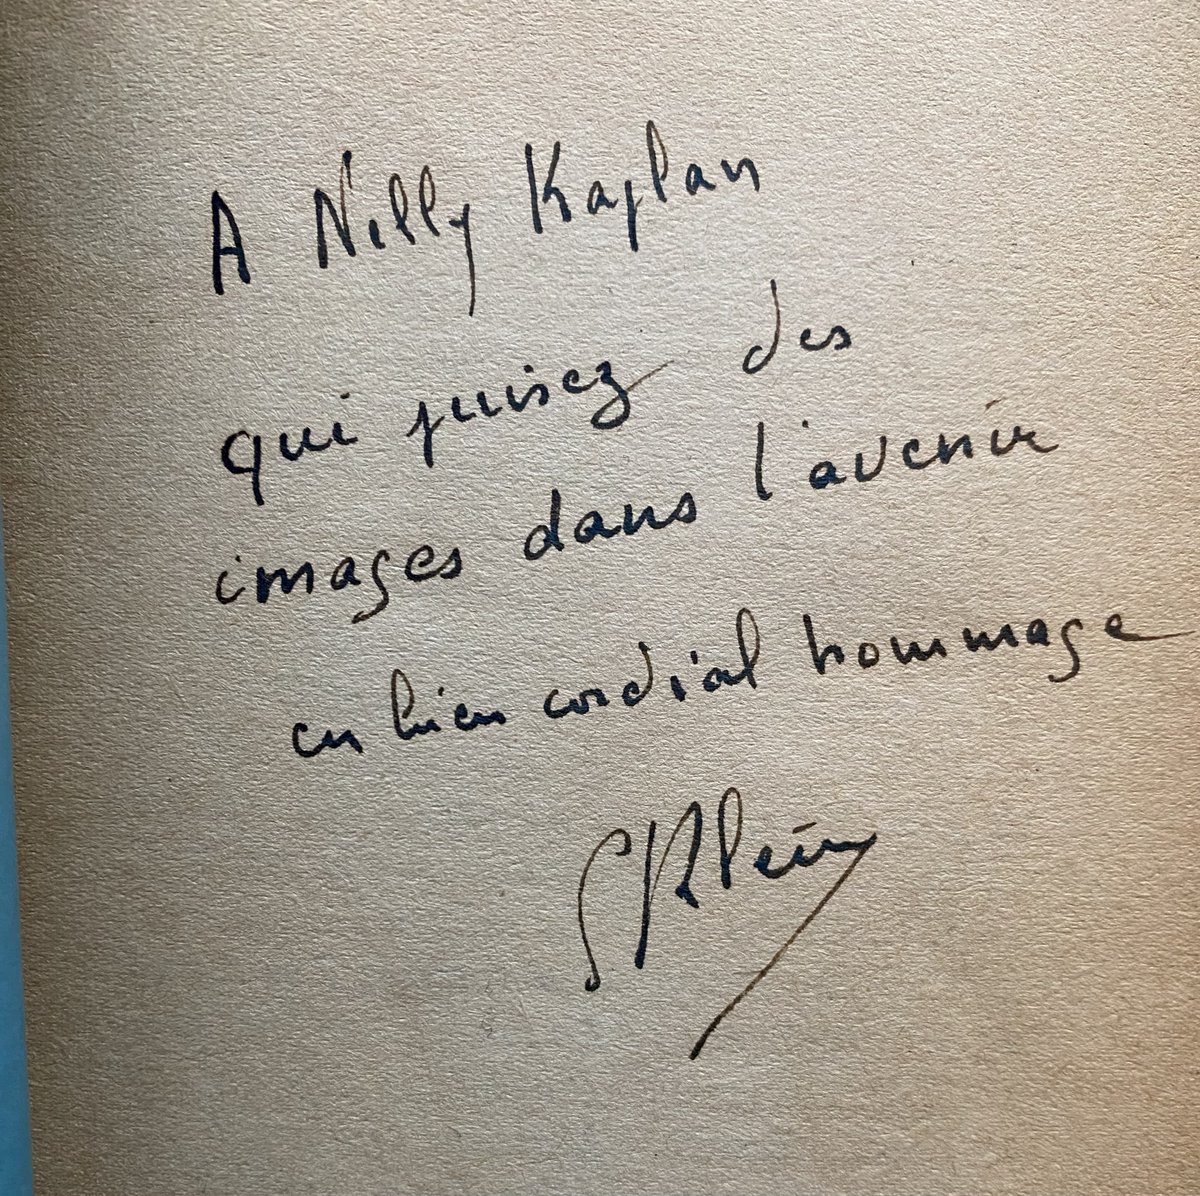 A Nelly Kaplan
qui puisez des
images dans l'avenir
en bien cordial hommage
GKlein